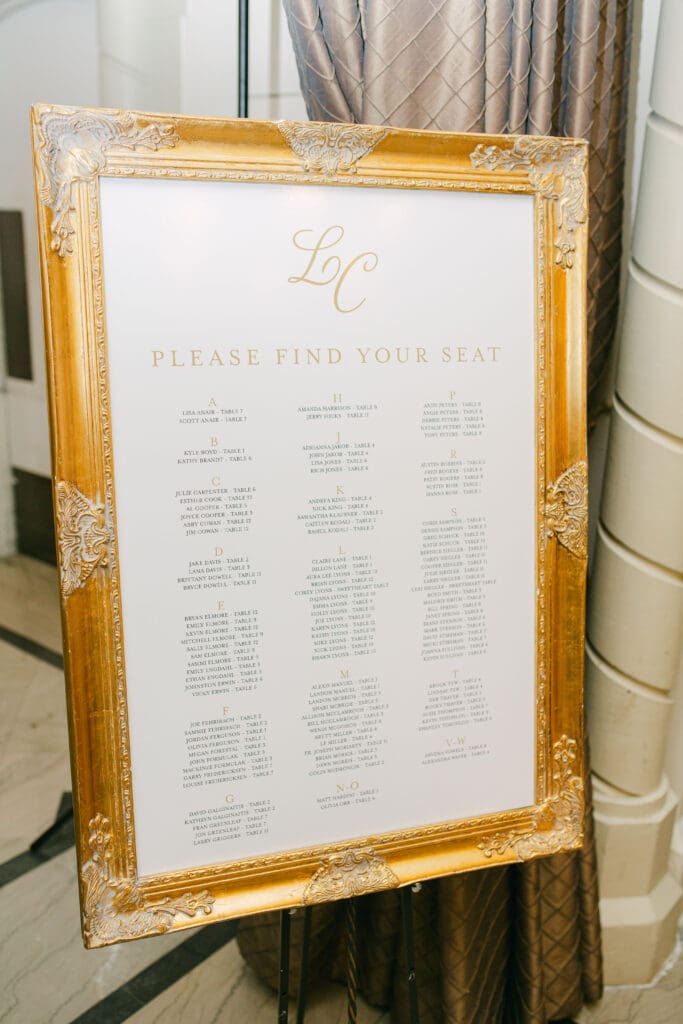 LC
PLEASE FIND YOUR SEAT
A
LISA ANAIR - TABLE 7
SCOTT ANAIR - TABLE 7
B
KYLE BOYD - TABLE 1
KATHY BRANDT - TABLE 6
C
JULIE CARPENTER - TABLE 6
ESTHER COOK - TABLE 13
AL COOPER - TABLE 5
JOYCE COOPER - TABLE 5
ABBY COWAN - TABLE 12
JIM COWAN - TABLE 12
D
JAKE DAVIS - TABLE 3
LANA DAVIS - TABLE 3
BRITTANY DOWELL - TABLE 11
BRYCE DOWELL - TABLE 11
E
BRYAN ELMORE - TABLE 12
EMILY ELMORE - TABLE 9
KEVIN ELMORE - TABLE 12
MITCHELL ELMORE - TABLE 9
SALLY ELMORE - TABLE 12
SAM ELMORE - TABLE 8
SAMMI ELMORE - TABLE
EMILY ENGDAHL - TABLE 3
ETHAN ENGDAHL - TABLE 3
JOHNSTON ERWIN - TABLE 6
VICKY ERWIN - TABLE 6
F
JOE FEHRIBACH - TABLE 2
SAMMIE FEHRIBACH - TABLE 2
JORDAN FERGUSON - TABLE 1
OLIVIA FERGUSON - TABLE 1
MEGAN FORESTAL - TABLE 3
JOHN FORMULAK - TABLE 3
MACKINZIE FORMULAK - TABLE 3
GARRY FREDERICKSEN - TABLE 7
LOUISE FREDERICKSEN - TABLE 7
G
DAVID GALGINAITIS - TABLE 2
KATHRYN GALGINAITIS - TABLE 2
FRAN GREENLEAF - TABLE 7
JON GREENLEAF - TABLE 7
LARRY GRIGGERS - TABLE 13
H
AMANDA HARRISON - TABLE 9
JERRY HICKS - TABLE 13
J
ADRIANNA JAKOB - TABLE 4
JOHN JAKOB - TABLE 4
LISA JONES - TABLE 6
RICH JONES - TABLE 6
K
ANDREA KING - TABLE 4
NICK KING - TABLE 4
SAMANTHA KLAUSNER - TABLE 2
CAITLYN KODALI - TABLE 2
RAHUL KODALI - TABLE 2
L
CLAIRE LANE - TABLE 1
DILLON LANE - TABLE 1
AURA LEE LYONS - TABLE 13
BRIAN LYONS - TABLE 12
COREY LYONS - SWEETHEART TABLE
DAJANA LYONS - TABLE 10
EMMA LYONS - TABLE
HOLLY LYONS - TABLE
JOE LYONS - TABLE 10
KAREN LYONS - TABLE 12
KATHY LYONS - TABLE 13
MIKE LYONS - TABLE 13
NICK LYONS - TABLE 10
SHAWN LYONS - TABLE 13
M
ALEXIS MANUEL - TABLE 1
LANDON MANUEL - TABLE 1
LANDON MCBRIDE - TABLE 3
SHABI MCBRIDE - TABLE 3
ALLISON MCCLAMROCH - TABLE 5
BILL MCCLAMROCH - TABLE 5
WENDI MCGOHON - TABLE 8
BRETT MILLER - TABLE 4
LE MILLER - TABLE 4
FR. JOSEPH MORIARTY - TABLE 11
BRIAN MORRIS - TABLE
DAWN MORRIS - TABLE
COLIN MUDRONCIK - TABLE 2
N-O
MATT NARDINI - TABLE 1
OLIVIA ORR - TABLE 4
P
ANDY PETERS - TABLE 8
ANGIE PETERS - TABLE 8
DEBBIE PETERS - TABLE 8
NATALIE PETERS - TABLE 8
TONY PETERS - TABLE 8
R
AUSTIN ROBBINS - TABLE 2
FRED ROGERS - TABLE 8
PATSY ROGERS - TABLE 8
AUSTIN ROSE - TABLE 1
HANNA ROSE - TABLE 1
S
CHRIS SAMPSON - TABLE 5
DONNA SAMPSON - TABLE 5
GREG SCHUCK - TABLE 10
KATIE SCHUCK - TABLE 10
BERNICE SIEGLER - TABLE 11
CASEY SIEGLER - TABLE 11
COOPER SIEGLER - TABLE 11
JULIE SIEGLER - TABLE
LARRY SIEGLER - TABLE 11
LEXI SIEGLER - SWEETHEART TABLE
BOYD SMITH - TABLE 5
MALORIE SMITH - TABLE
BILL SPRING - TABLE 8
JANEY SPRING - TABLE 8
DIANE STENSON - TABLE 6
MARK STENSON - TABLE 6
DAVID STHERMAN - TABLE 7
MICKI STHERMAN - TABLE 7
JOANNA SULLIVAN - TABLE
KEVIN SULLIVAN - TABLE
T
BROCK TEW - TABLE 4
LINDSAY TEW - TABLE 4
DEB THAYER - TABLE
ROCKY THAYER - TABLE
SUZIE THOMPSON - TABLE 7
KEVIN THOMPSON - TABLE 7
SHANLEY TURNQUIST - TABLE 9
V-W
DAVENA VOWELS - TABLE 6
ALEXANDRA WAFER - TABLE 4